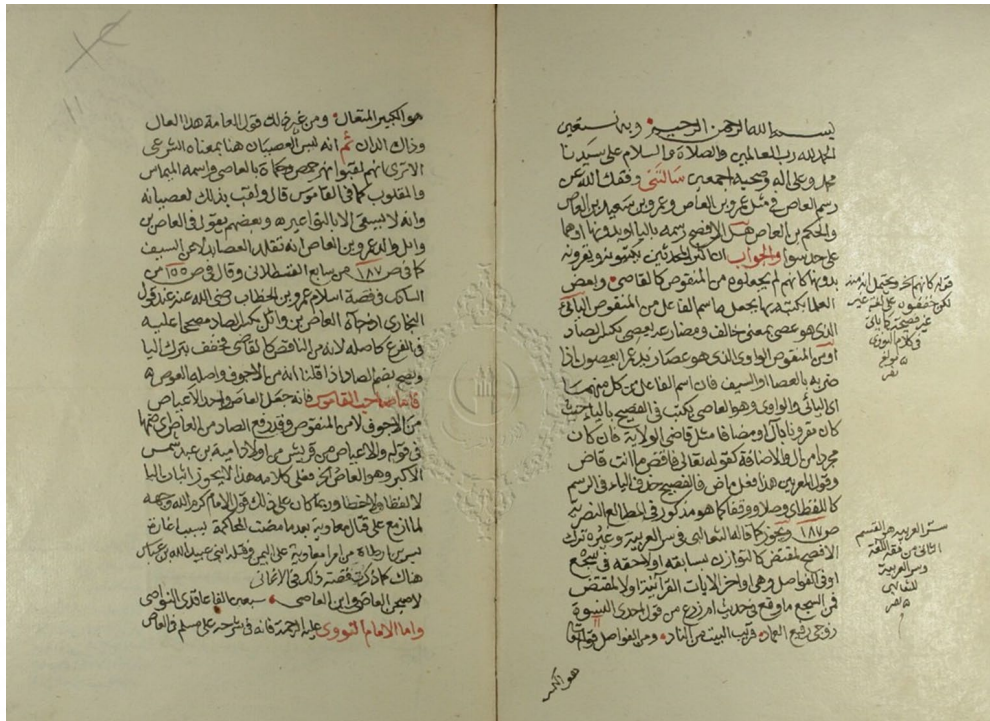 بسم الله الرحمن الرحيم وبه نستعين
الحمد لله رب العالمين والصلاة والسلام على سيدنا
محمد وعلى اله وصحبه اجمعين سألتنى وفقك الله عن
رسم العاص في مثل عمرو بن العاص وعمرو بن سعيد بن العاص
والحكم بن العاص هل الافصح رسمه باليا او بدونها او هما
على حد سوا والجواب ان اكثر المحدثين يكتبونه ويقرونه
بدونها كانهم لم يجعلوه من المنقوص كالقاصى وبعض
العلما يكتبه بها يجعله اسم الفاعل من المنقوص اليائى
الذى هو عصى بمعنى خالف ومضارعه يعصى بكسر الصاد
او من المنقوص الواوى الذى هو عصا زيد عمرا يعصوه اذا
ضربه بالعصا او السيف فان اسم الفاعل من كل منهما
اى اليائى والواوى وهو العاصى يكتب في الفصيح باليا حيث
كان مقرونا بأل او مضافا مثل قاضى الولاية فان كان
مجردا من ال والاضافة كقوله تعالى فاقض ما انت قاض
وقول المعربين هذا فعل ماض فالفصيح حذف الياء في الرسم
كاللفظ اى وصلا ووقفا كما هو مذكور في المطالع النصرية
ص ١٨٧ ويجوز كما قاله الثعالبى في سر العربية وغيره ترك
الافصح لمقتض كالتوازن لسابقه او لاحقه في سجع
او في الفواصل وهى اواخر الايات القرائنية او لا لمقتض
فمن السجع ما وقع في حديث ام زرع من قول احدى النسوة
زوجى رفيع العماد قريب البيت من الناد ومن الفواصل قوله تعالى
هو الكبير
قوله كانهم الخ ويحتمل انه منه
لكن خففوه على لغة غير
فصيحة كما ياتى
في كلام النووى
نصر
سر العربية هو القسم
الثانى من فقه اللغة
وسر العربية
للثعالبى
نصر
هو الكبير المتعال ومن غير ذلك قول العامة هذا العال
وذاك الدان ثم انه ليس العصيان هنا بمعناه الشرعى
الا ترى انهم لقبوا نهر حمص وحماة بالعاصى واسمه الميماس
والمقلوب كما في القاموس قال ولقب بذلك لعصيانه
وانه لا يسقى الا بالنواعير وبعضهم يقول في العاص بن
وائل والد عمرو بن العاص انه تقلد العصا بدلا عن السيف
كما في ص ١٨٧ من سابع القسطلانى وقال في ص ١٥٥ من
السادس في قصة اسلام عمرو بن الخطاب رضى الله عنه عند قول
البخارى اذ جاه العاص بن وائل بكسر الصاد مصححا عليه
في الفرع كاصله لانه من الناقص كالقاضى مخفف بترك اليا
ويصح بضم الصاد اذا قلنا انه من الاجوف واصله العوص
فانه جعل العاص واحد الاعياص
من الاجوف لا من المنقوص وقد رفع الصاد من العاص اى ضمها
في قوله والاعياص من قريش من اولاد امية بن عبد شمس
الاكبر وهو العاص الخ فعلى كلامه هذا لا يجوز اثبات اليا
لا لفظا ولا خطا وربما كان على ذلك قول الامام كرم الله وجهه
لما ازمع على قتال معاوية بعد ما مضت المحاكمة بسبب اغارة
بسر بن ارطاة من امرا معاوية على اليمن وقتله ابنى عبيد الله بن عباس
هناك كما ذكرت قصته في الاغانى
لاصبحن العاصى وابن العاصى سبعين الفا عاقدى النواصى
واما الامام النووى عليه الرحمة فانه في شرحه على مسلم في العاص